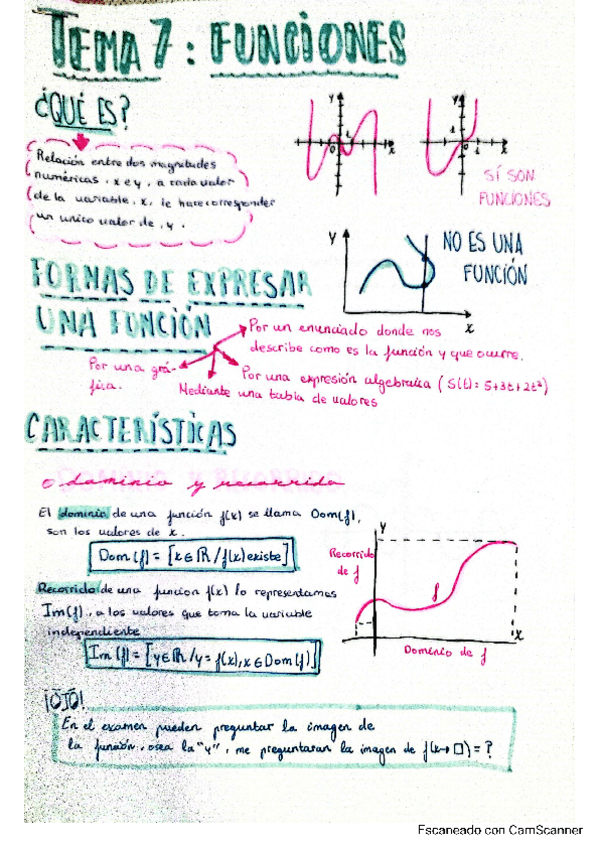 TEMA 7: FUNCIONES
¿QUÉ ES?
Relación entre dos magnitudes
numéricas, x e y, a cada valor
de la variable, x, le hace corresponder
un unico valor de, y.
y
1
0
x
y
1
0
1
x
SÍ SON
FUNCIONES
y
x
NO ES UNA
FUNCIÓN
FORMAS DE EXPRESAR
UNA FUNCIÓN
Por un enunciado donde nos
describe como es la función y que ocurre.
Por una grá-
fica.
Por una expresión algebraica (S(t)= 5+3t+2t²)
Mediante una tabla de valores
CARACTERÍSTICAS
o dominio y recorrido
El dominio de una función f(x) se llama Dom(f),
son los valores de x.
Dom(f) = [x∈ℝ/f(x)existe]
Recorrido de una funcion f(x) lo representamos
Im(f), a los valores que toma la variable
independiente
Im(f) = [y∈ℝ/y=f(x), x∈Dom(f)]
y
Recorrido
de f
f
x
Dominio de f
¡OJO!
En el examen pueden preguntar la imagen de
la función, osea la "y", me preguntaran la imagen de f(x→□)=?
Escaneado con CamScanner